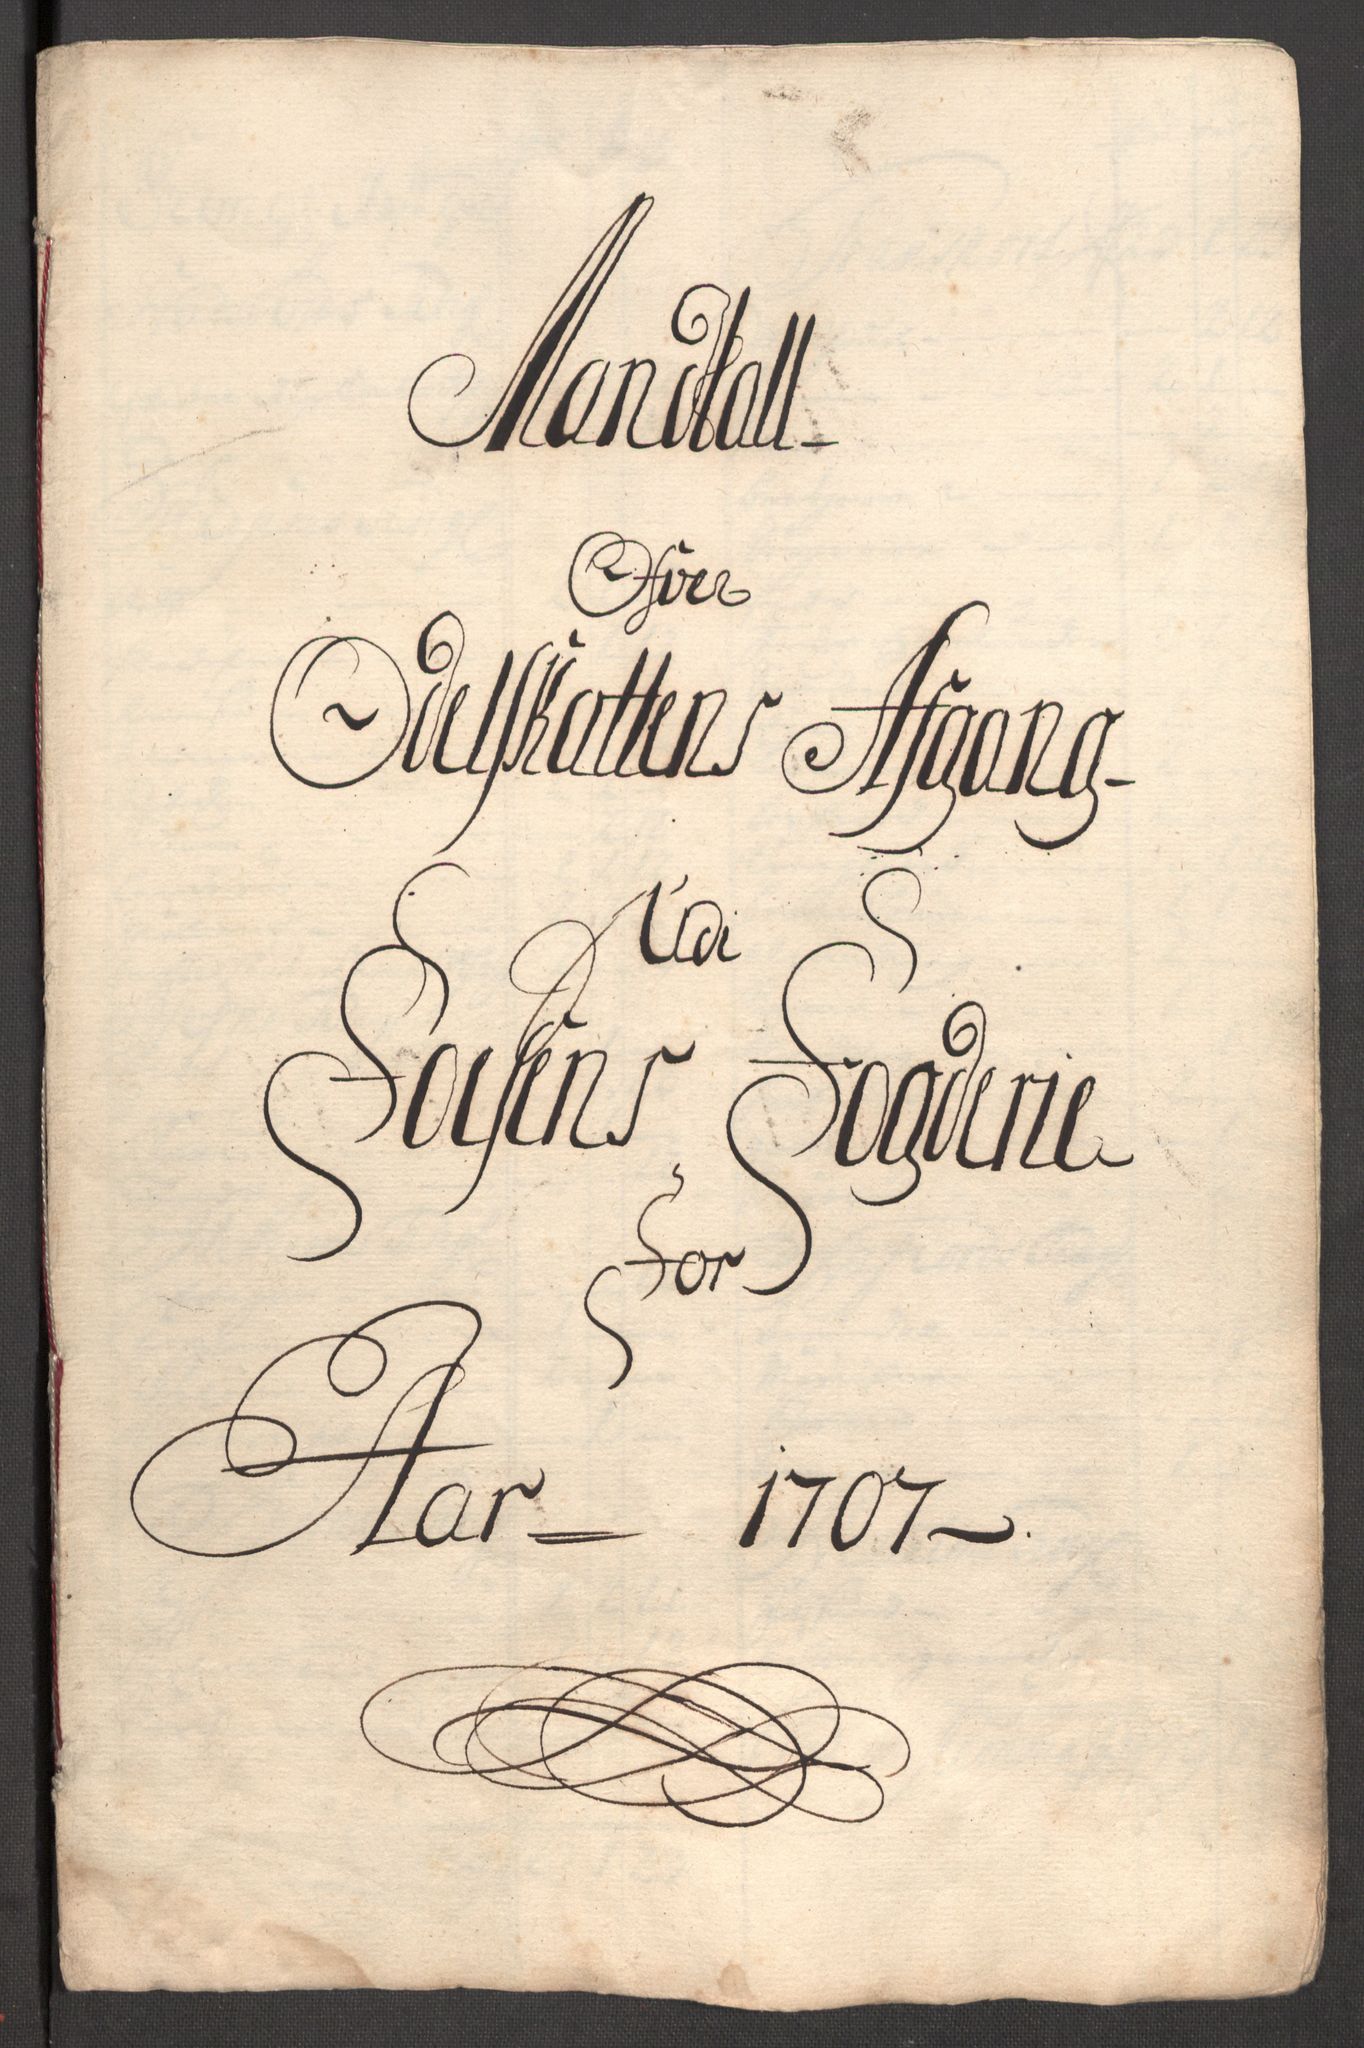 Mandtall
Ofver
Odelskattens Afgang
Udi
Fosens Fogderie
for
Aar 1707